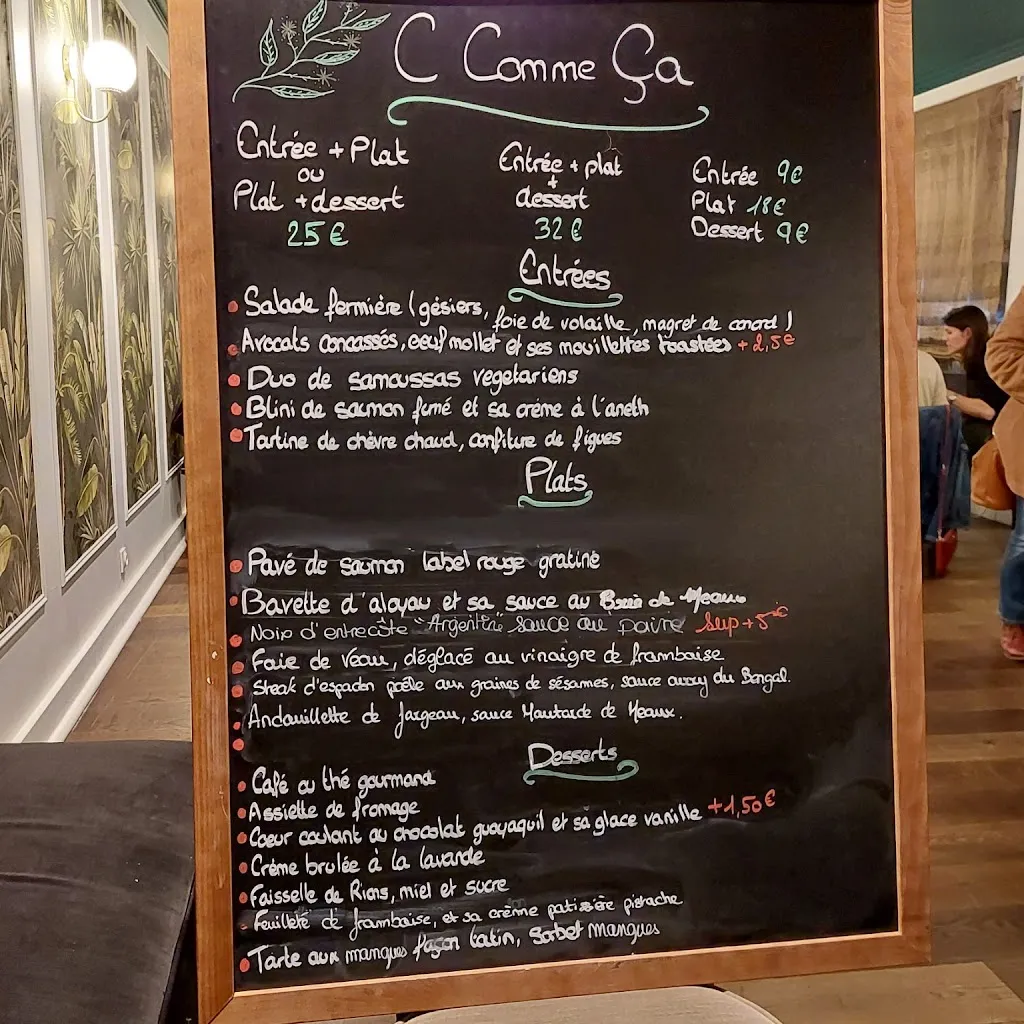 C Comme Ça
Entrée + Plat
ou
Plat + dessert
25 €
Entrée + plat
+
dessert
32 €
Entrée 9€
Plat 18€
Dessert 9€
Entrées
Salade fermière (gésiers, foie de volaille, magret de canard)
Avocats concassés, oeuf mollet et ses mouillettes toastées +2,5€
Duo de samoussas vegetariens
Blini de saumon fumé et sa crème à l'aneth
Tartine de chèvre chaud, confiture de figues
Plats
Pavé de saumon label rouge gratiné
Bavette d'aloyau et sa sauce au Brie de Meaux
Noix d'entrecôte "Argentine" sauce au poivre Sup +5€
Foie de veau, déglacé au vinaigre de framboise
Steak d'espadon poêlé aux graines de sésames, sauce curry du Bengal.
Andouillette de Jargeau, sauce Moutarde de Meaux.
Desserts
Café ou thé gourmand
Assiette de fromage
Coeur coulant au chocolat guayaquil et sa glace vanille +1,50€
Crème brulée à la lavande
Faisselle de Rians, miel et sucre
Feuilleté de framboise, et sa crème patissière pistache
Tarte aux mangues façon tatin, Sorbet mangues